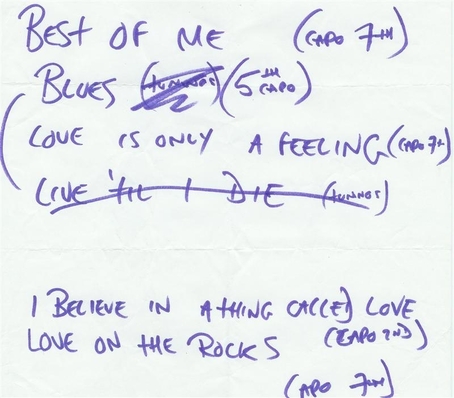 BEST OF ME (CAPO 7TH)
BLUES (TUNNGS) (5TH CAPO)
LOVE IS ONLY A FEELING (CAPO 7TH)
LIVE 'TIL I DIE (TUNNGS)
I BELIEVE IN A THING CALLED LOVE
LOVE ON THE ROCKS (CAPO 2ND)
(CAPO 7TH)